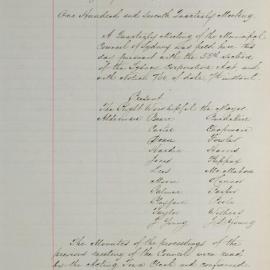 One Hundred and Seventh Quarterly Meeting
A Quarterly Meeting of the Municipal
Council of Sydney was held here this
day pursuant with the 35th section
of the Sydney Corporation Act and
with Notice No of date 7th instant
Present
The Right Worshipful the Mayor
Aldermen
Chapman
Dean Fowler
Hardie Harris
Jones Kippax
Lees McMahon
Moore
Palmer
Playfair Poole
Taylor Withers
J. Young J. D. Young
The Minutes of the proceedings of the
previous meeting of the Council were read
by the Acting Town Clerk and confirmed